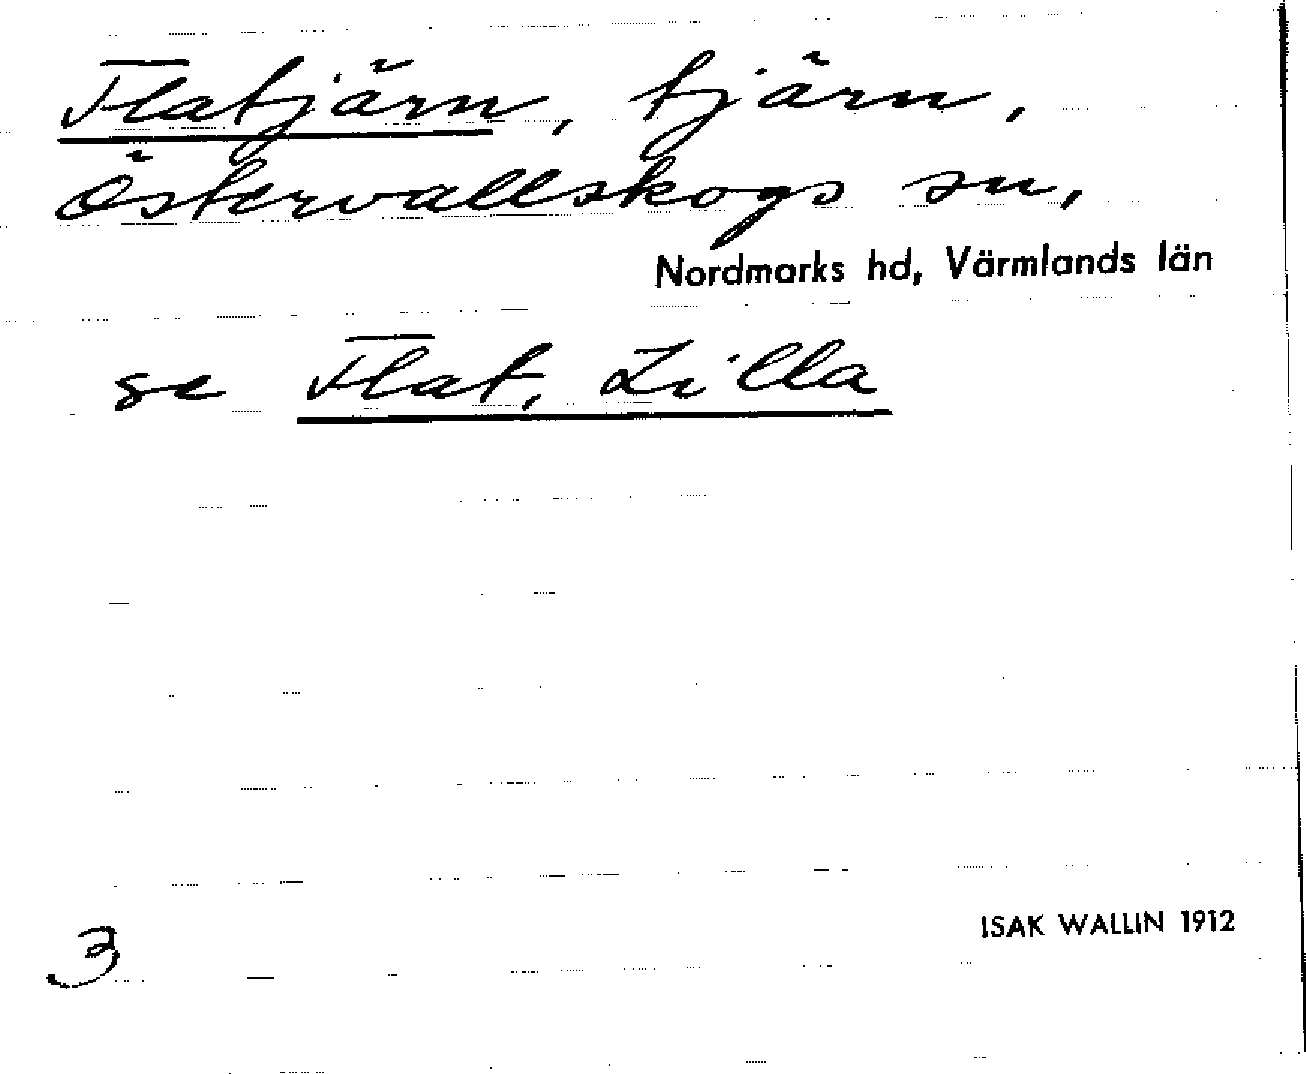 Flatjärn, tjärn,
Östervallskogs sn,
Nordmarks hd, Värmlands län
se Flat, Lilla
ISAK WALLIN 1912
3